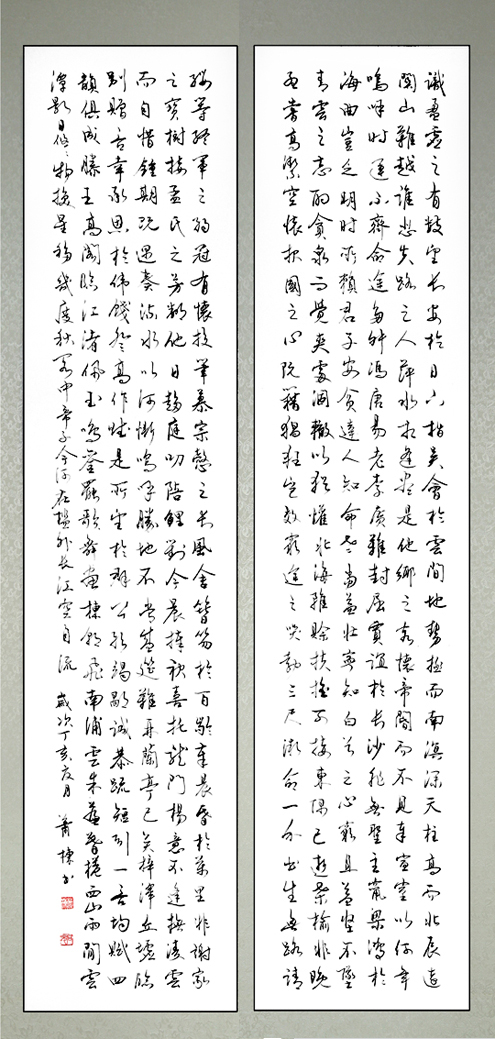 識盈虛之有數望長安於日下指吳會於雲間地勢極而南溟深天柱高而北辰遠
關山難越誰悲失路之人萍水相逢盡是他鄉之客懷帝閽而不見奉宣室以何年
嗚呼時運不齊命途多舛馮唐易老李廣難封屈賈誼於長沙非無聖主竄梁鴻於
海曲豈乏明時所賴君子安貧達人知命老當益壯寧知白首之心窮且益堅不墜
青雲之志酌貪泉而覺爽處涸轍以猶懽北海雖賒扶搖可接東隅已逝桑榆非晚
孟嘗高潔空懷報國之心阮籍猖狂豈效窮途之哭勃三尺微命一介書生無路請
纓等終軍之弱冠有懷投筆慕宗愨之長風舍簪笏於百齡奉晨昏於萬里非謝家
之寶樹接孟氏之芳鄰他日趨庭叨陪鯉對今晨捧袂喜托龍門楊意不逢撫凌雲
而自惜鍾期既遇奏流水以何慚嗚呼勝地不常盛筵難再蘭亭已矣梓澤丘墟臨
別贈言幸承恩於偉餞登高作賦是所望於群公敢竭鄙誠恭疏短引一言均賦四
韻俱成滕王高閣臨江渚佩玉鳴鑾罷歌舞畫棟朝飛南浦雲朱簾暮捲西山雨閒雲
潭影日悠悠物換星移幾度秋閣中帝子今何在檻外長江空自流 歲次丁亥夏月 蕭棟書